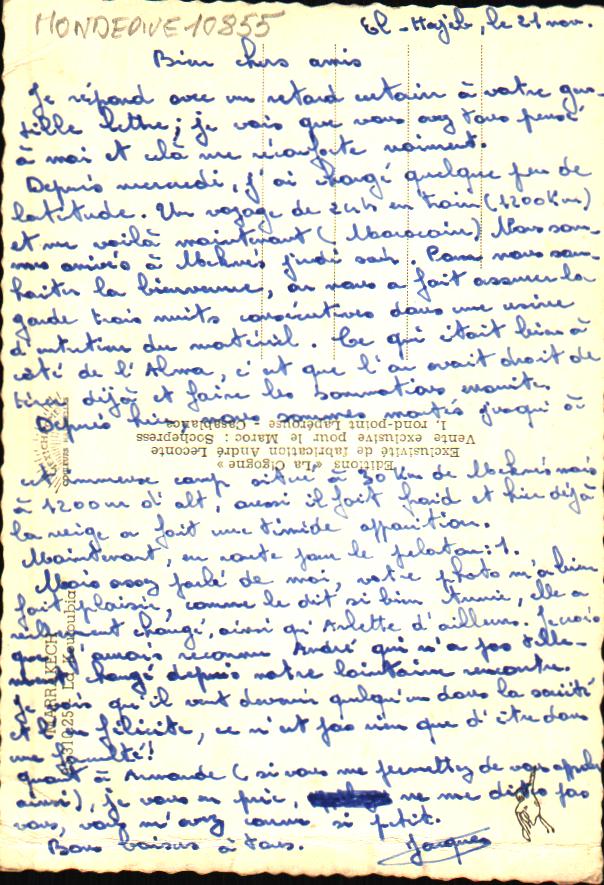 MONDEDIVE10855
El-Hajeb, le 21 nov.
Bien chers amis
Je répond avec un retard certain à votre gen-
tille lettre; je vois que vous avez tous pensé
à moi et celà me réconforte vraiment.
Depuis mercredi, j'ai changé quelque peu de
latitude. Un voyage de 24h en train (1200Km)
et me voilà maintenant (Marocain) Nous som-
mes arrivés à Meknès jeudi soir. Pour nous sou-
haiter la bienvenue, on nous a fait assurer la
garde trois nuits consécutives dans une usine
d'entretien du matériel. Ce qui était bien à
côté de l'Alma, c'est que l'on avait droit de
tirer déjà et faire les sommations ensuite.
Depuis hier, nous sommes montés jusqu'à
cet immense camp situé à 30 Km de Meknès mais
à 1200m d'alt, aussi il fait froid et hier déjà
la neige a fait une timide apparition.
Maintenant, en route pour le peloton: 1.
Mais assez parlé de moi, votre photo m'a bien
fait plaisir, comme le dit si bien Annie, elle a
changé, ainsi qu'Arlette d'ailleurs. Je crois
que j'aurais reconnu André qui n'a pas telle-
ment changé depuis notre lointaine rencontre.
Je vois qu'il veut devenir quelqu'un dans la société
et le félicite, ce n'est pas rien que d'être dans
une faculté!
quant à Armande (si vous me permettez de vous appeler
ainsi), je vous en prie, ne me dites pas
vous, vous m'avez connu si petit.
Bons baisers à tous.
Jacques
Editions "La Cigogne"
Exclusivité de fabrication André Leconte
Vente exclusive pour le Maroc : Sochepress
1, rond-point Lapérouse - Casablanca
MARRAKECH
La Koutoubia